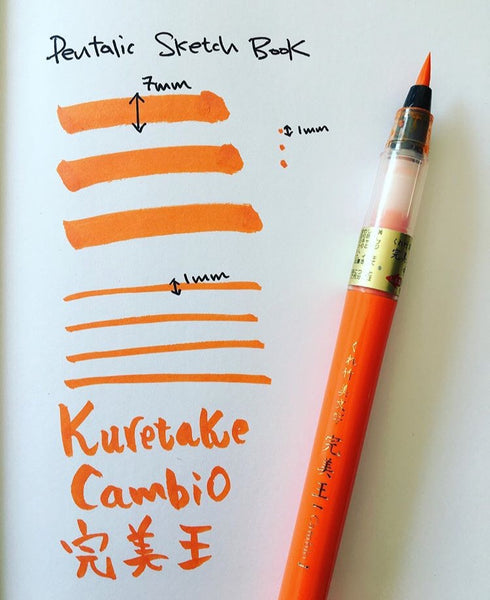 Pentalic Sketch Book
7mm
1mm
1mm
Kuretake
Cambio
完美王
くれ竹
完美王